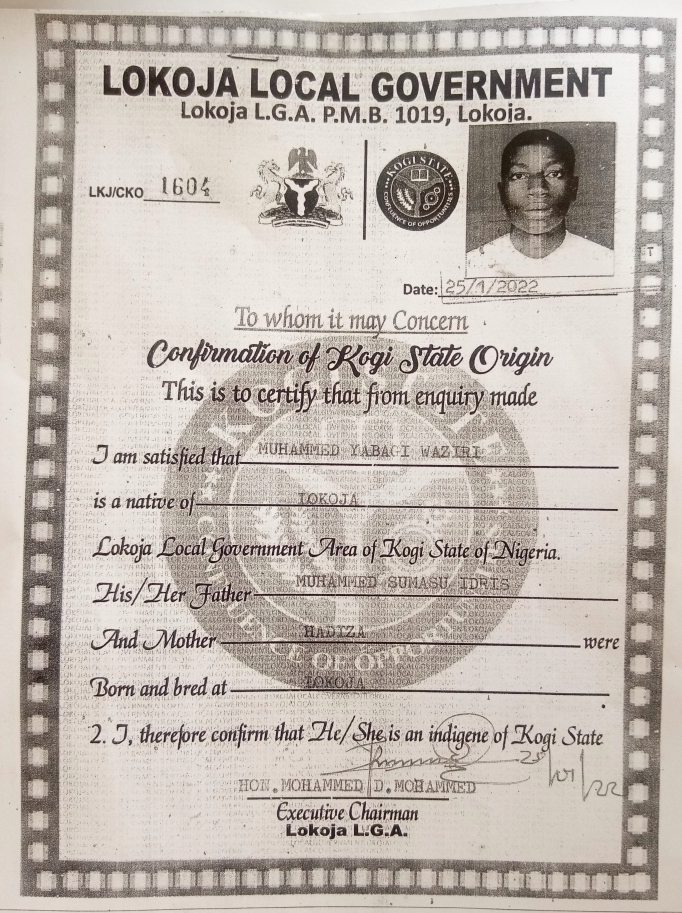 LOKOJA LOCAL GOVERNMENT
Lokoja L.G.A. P.M.B. 1019, Lokoja.
LKJ/CKO 1604
KOGI STATE
CONFLUENCE OF OPPORTUNITIES
Date: 25/1/2022
To whom it may Concern
Confirmation of Kogi State Origin
This is to certify that from enquiry made
I am satisfied that MUHAMMED YABAGI WAZIRI
is a native of LOKOJA
Lokoja Local Government Area of Kogi State of Nigeria.
His/Her Father MUHAMMED SUMASU IDRIS
And Mother HADIZA were
Born and bred at LOKOJA
2. I, therefore confirm that He/She is an indigene of Kogi State
25/01/22
HON. MOHAMMED D. MOHAMMED
Executive Chairman
Lokoja L.G.A.